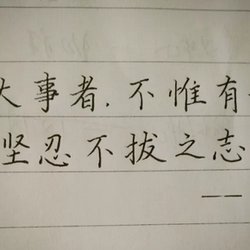 大事者,不惟有
坚忍不拔之志
——